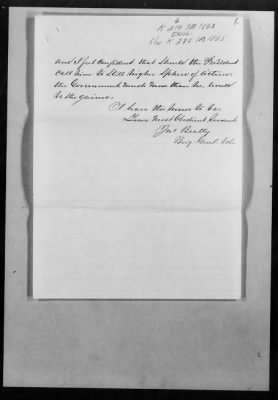 6
8.
K 219 CB 1863
ENCL
f/w K 284 CB 1865
and I feel confident that should the President
call him to still higher sphere of action
the Government much more than he, would
be the gainer.
I have the honor to be
Your Most Obedient Servant
Jno Beatty
Brig. Genl. Vols